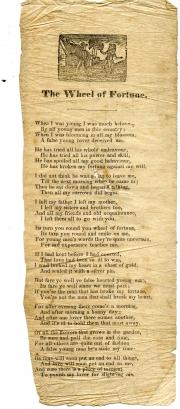 The Wheel of Fortune.
When I was young I was much belov'd,
By all young men in this country;
When I was blooming in all my blossom,
A false young lover deceived me.
He has tried all his whole endeavour,
He has tried all his power and skill,
He has spoiled all my good behaviour,
He has broken my fortune against my will.
I did not think he was going to leave me,
Till the next morning when he came in;
Then he sat down and began a talking,
Then all my sorrows did begin.
I left my father I left my mother,
I left my sisters and brothers too,
And all my friends and old acquaintance,
I left them all to go with you.
So turn you round you wheel of fortune,
Its turn you round and smile on me,
For young men's words they're quite uncertain,
For sad experience teaches me.
If I had known before I had courted,
That love had been so ill to win,
I had locked my heart in a chest of gold,
And sealed it with a silver pin.
But fare ye well ye false hearted young man,
So fare ye well since we must part,
If you're the man that has broke my fortune,
You're not the man that shall break my heart,
For after evening there come's a morning,
And after morning a bonny day;
And after one lover there comes another,
And it's ill to hold them that must away.
Of all the flowers that grows in the garden,
Be sure and pull the rose and rue,
For all others are quite out of fashion,
A false young man he's stole my
So time will soon put an end to all things,
And love will soon put an end to me,
And sure there is a place of torment,
To punish my lover for slighting me.